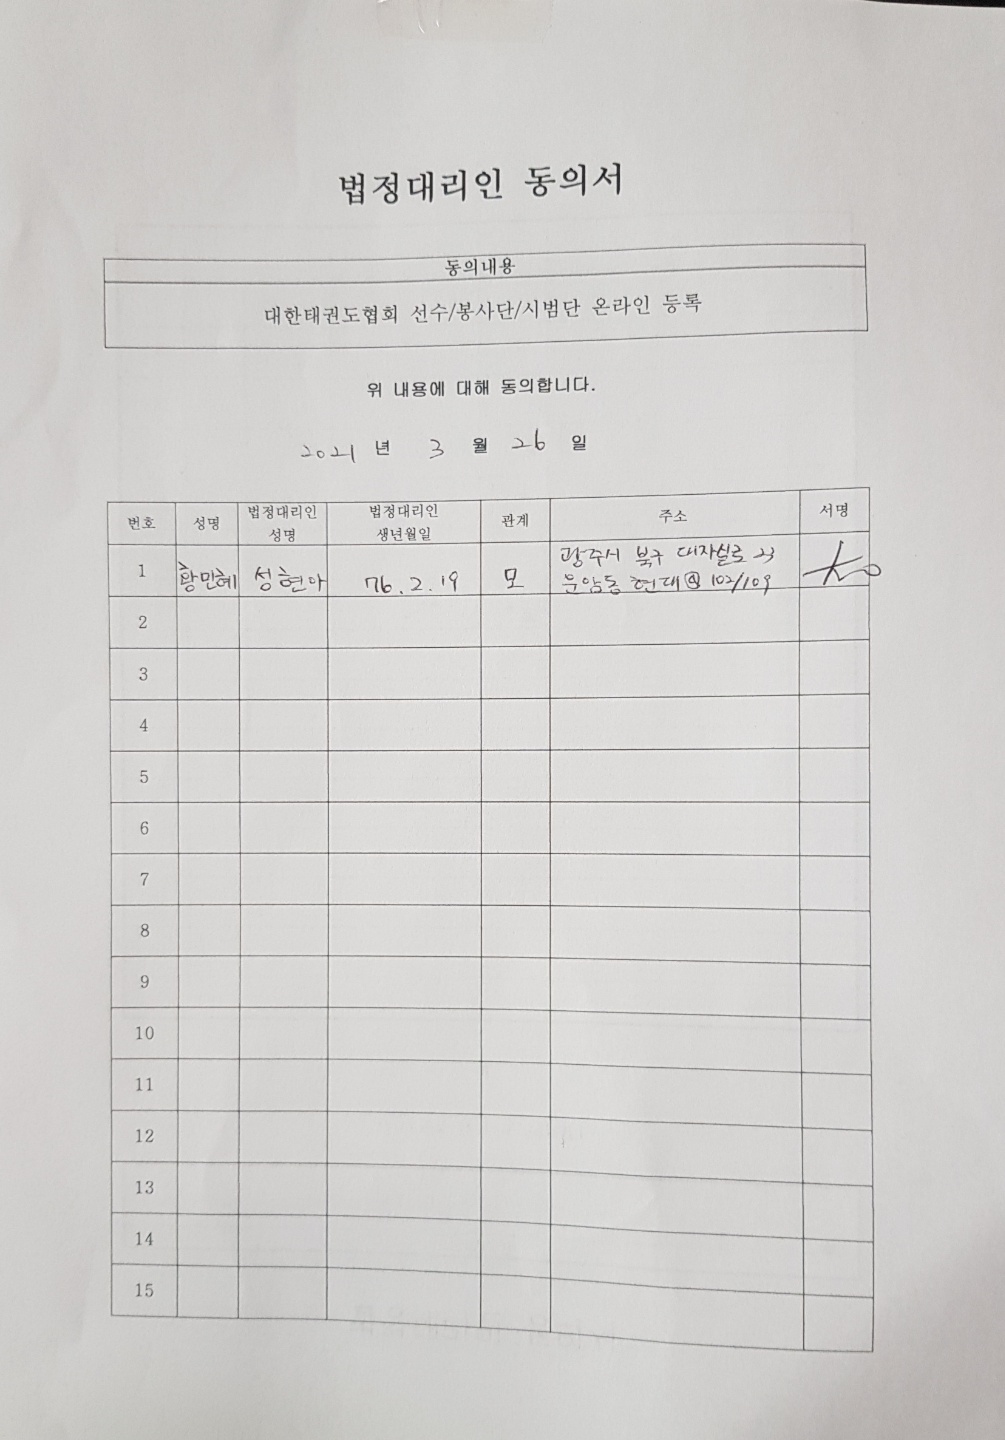 법정대리인 동의서
동의내용
대한태권도협회 선수/봉사단/시범단 온라인 등록
위 내용에 대해 동의합니다.
2021 년 3 월 26 일
번호 성명 법정대리인 성명 법정대리인 생년월일 관계 주소 서명
1 황민혜 성현아 76.2.19 모 광주시 북구 대자실로
문암동 현대 102/109
2
3
4
5
6
7
8
9
10
11
12
13
14
15